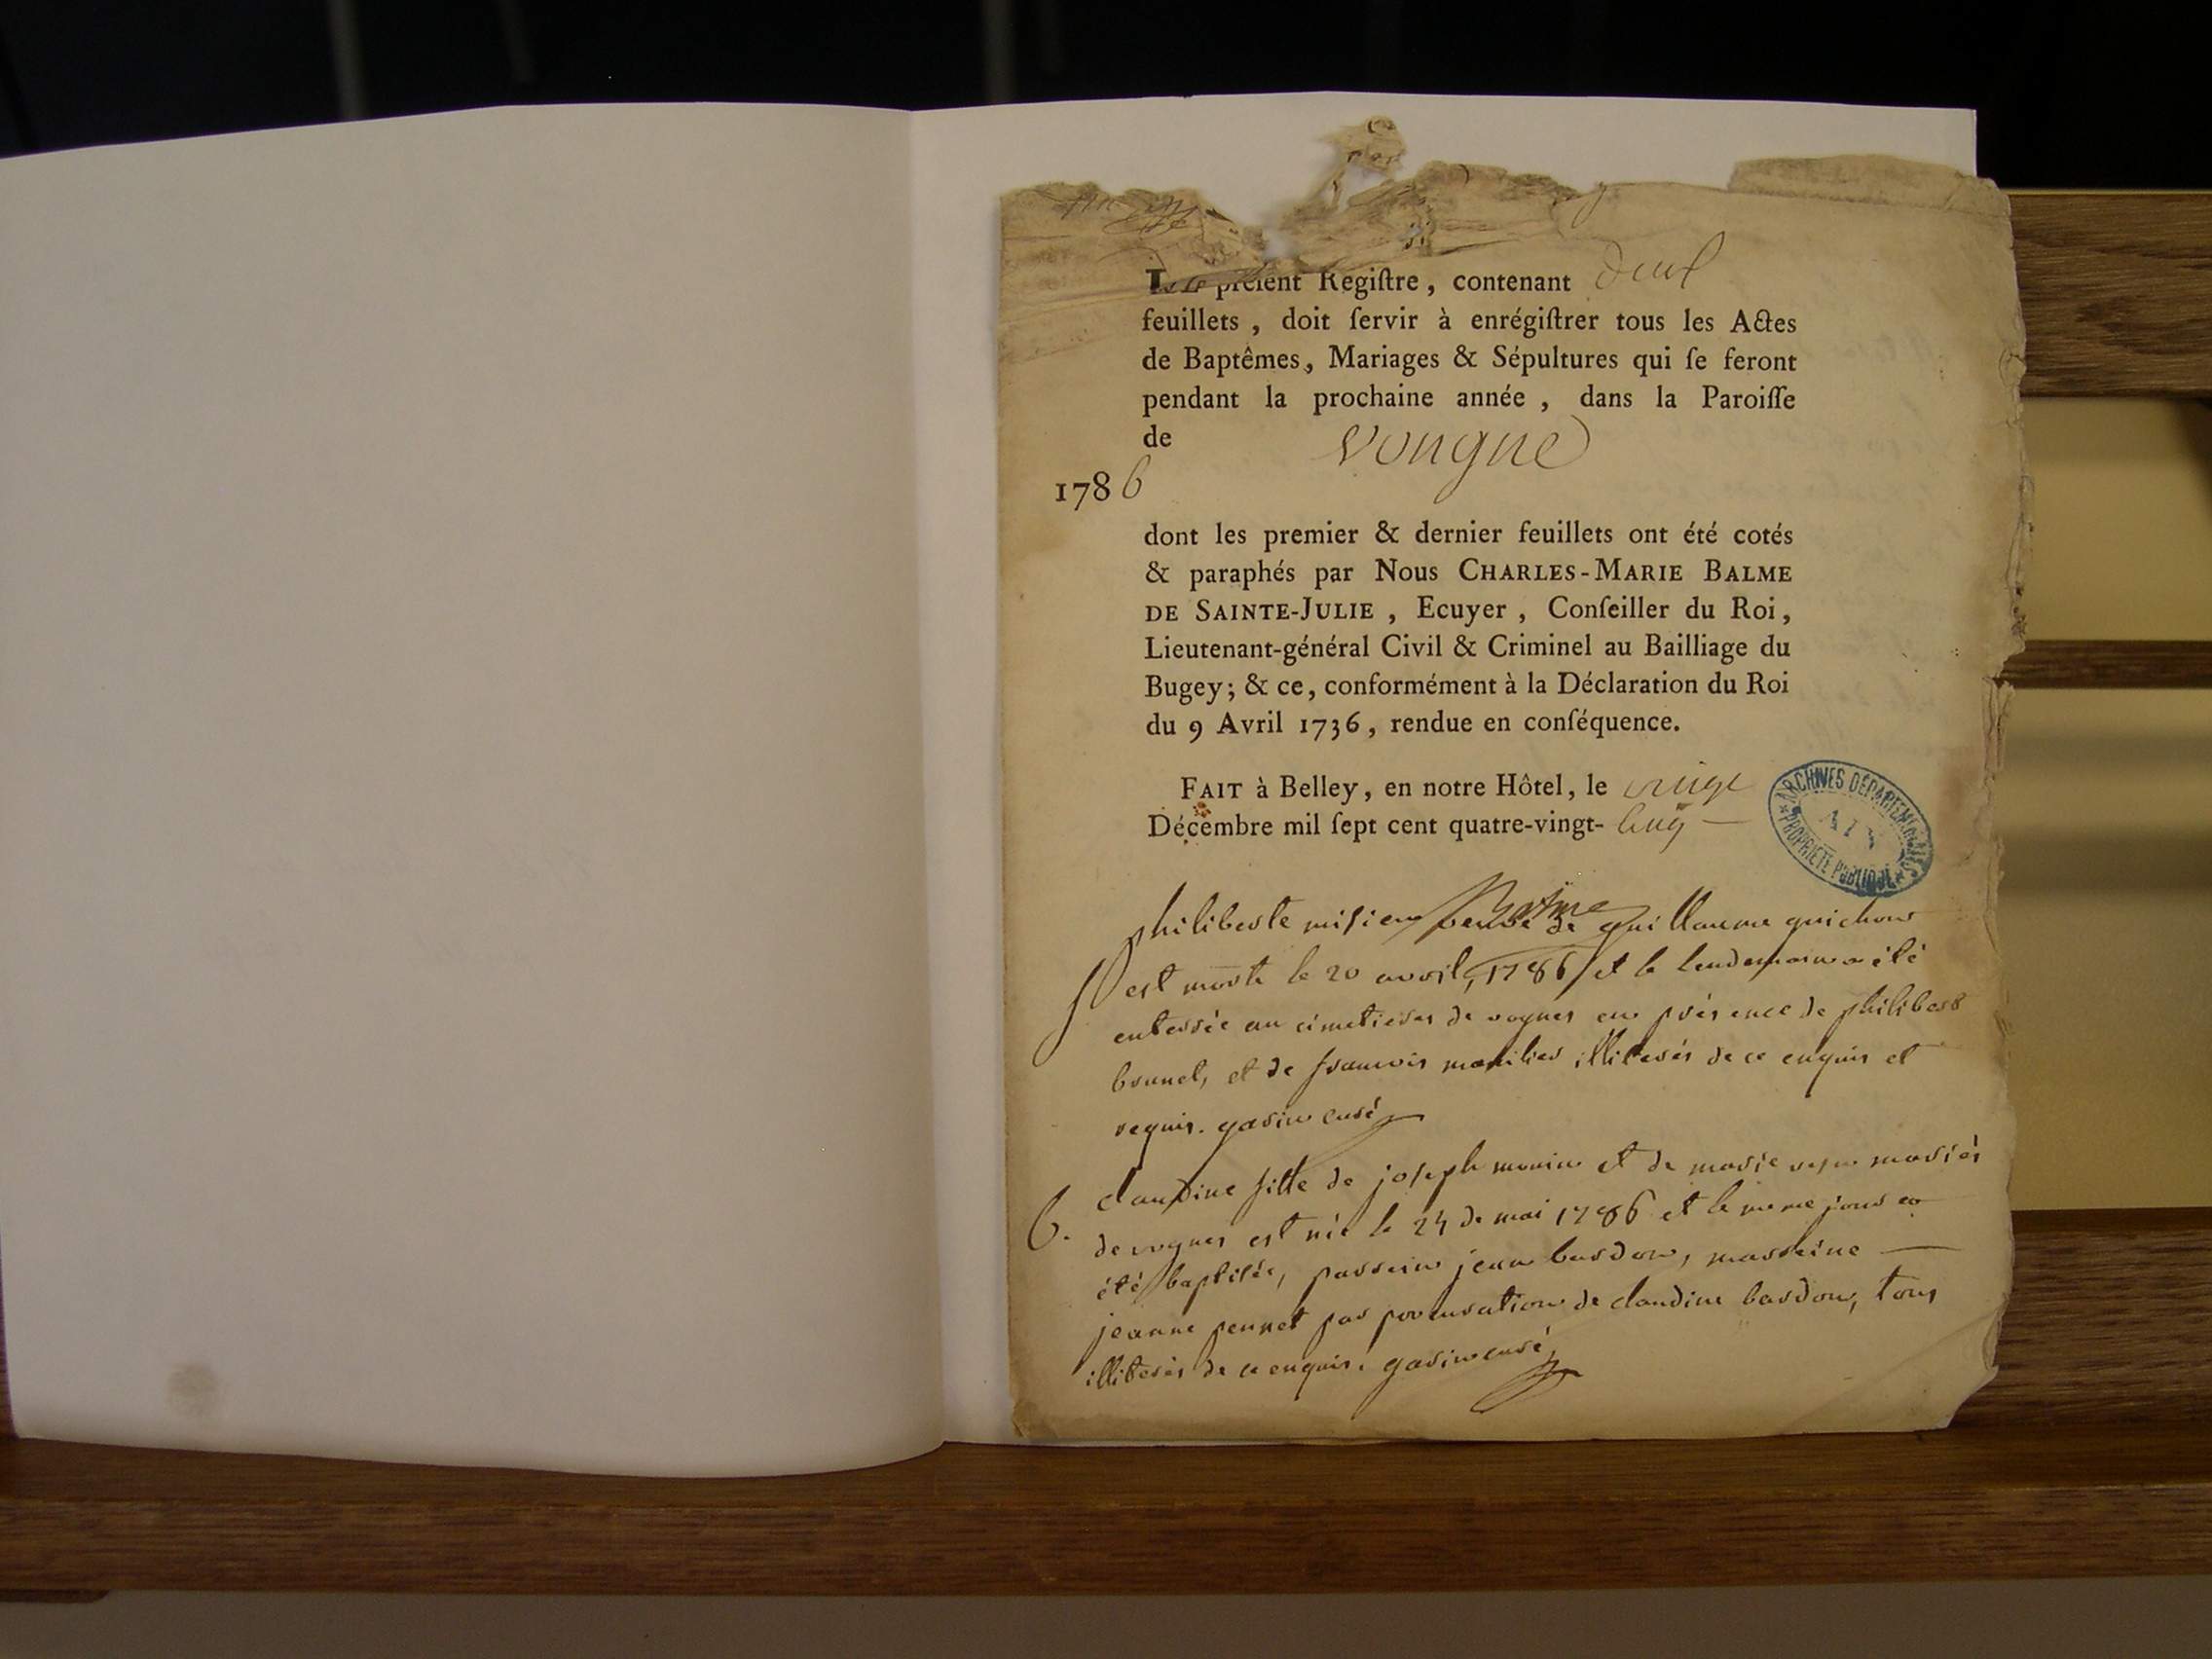 présent Regiſtre, contenant deux
feuillets, doit ſervir à enrégiſtrer tous les Actes
de Baptêmes, Mariages & Sépultures qui ſe feront
pendant la prochaine année, dans la Paroiſſe
de vongne
1786
dont les premier & dernier feuillets ont été cotés
& paraphés par Nous CHARLES-MARIE BALME
DE SAINTE-JULIE, Ecuyer, Conſeiller du Roi,
Lieutenant-général Civil & Criminel au Bailliage du
Bugey; & ce, conformément à la Déclaration du Roi
du 9 Avril 1736, rendue en conſéquence.
FAIT à Belley, en notre Hôtel, le
Décembre mil ſept cent quatre-vingt- cinq
ARCHIVES DÉPARTEMENTALES
AIN
PROPRIÉTÉ PUBLIQUE
Balme
philiberte veuve de guillaume guichon
S est morte le 20 avril, 1786 et le lendemain a été
enterrée au cimetierer de vognes en présence de philibert
bonnet, et de francois illiterés de ce enquis et
requis. garin curé
B. claudine fille de joseph monin et de marie mariés
de vognes est née le 24 de mai 1786 et le meme jour a
été baptisée, parrein jean bardon, marreine
jeanne pennet par procuration de claudine bardon, tous
illiterés de ce enquis. garin curé